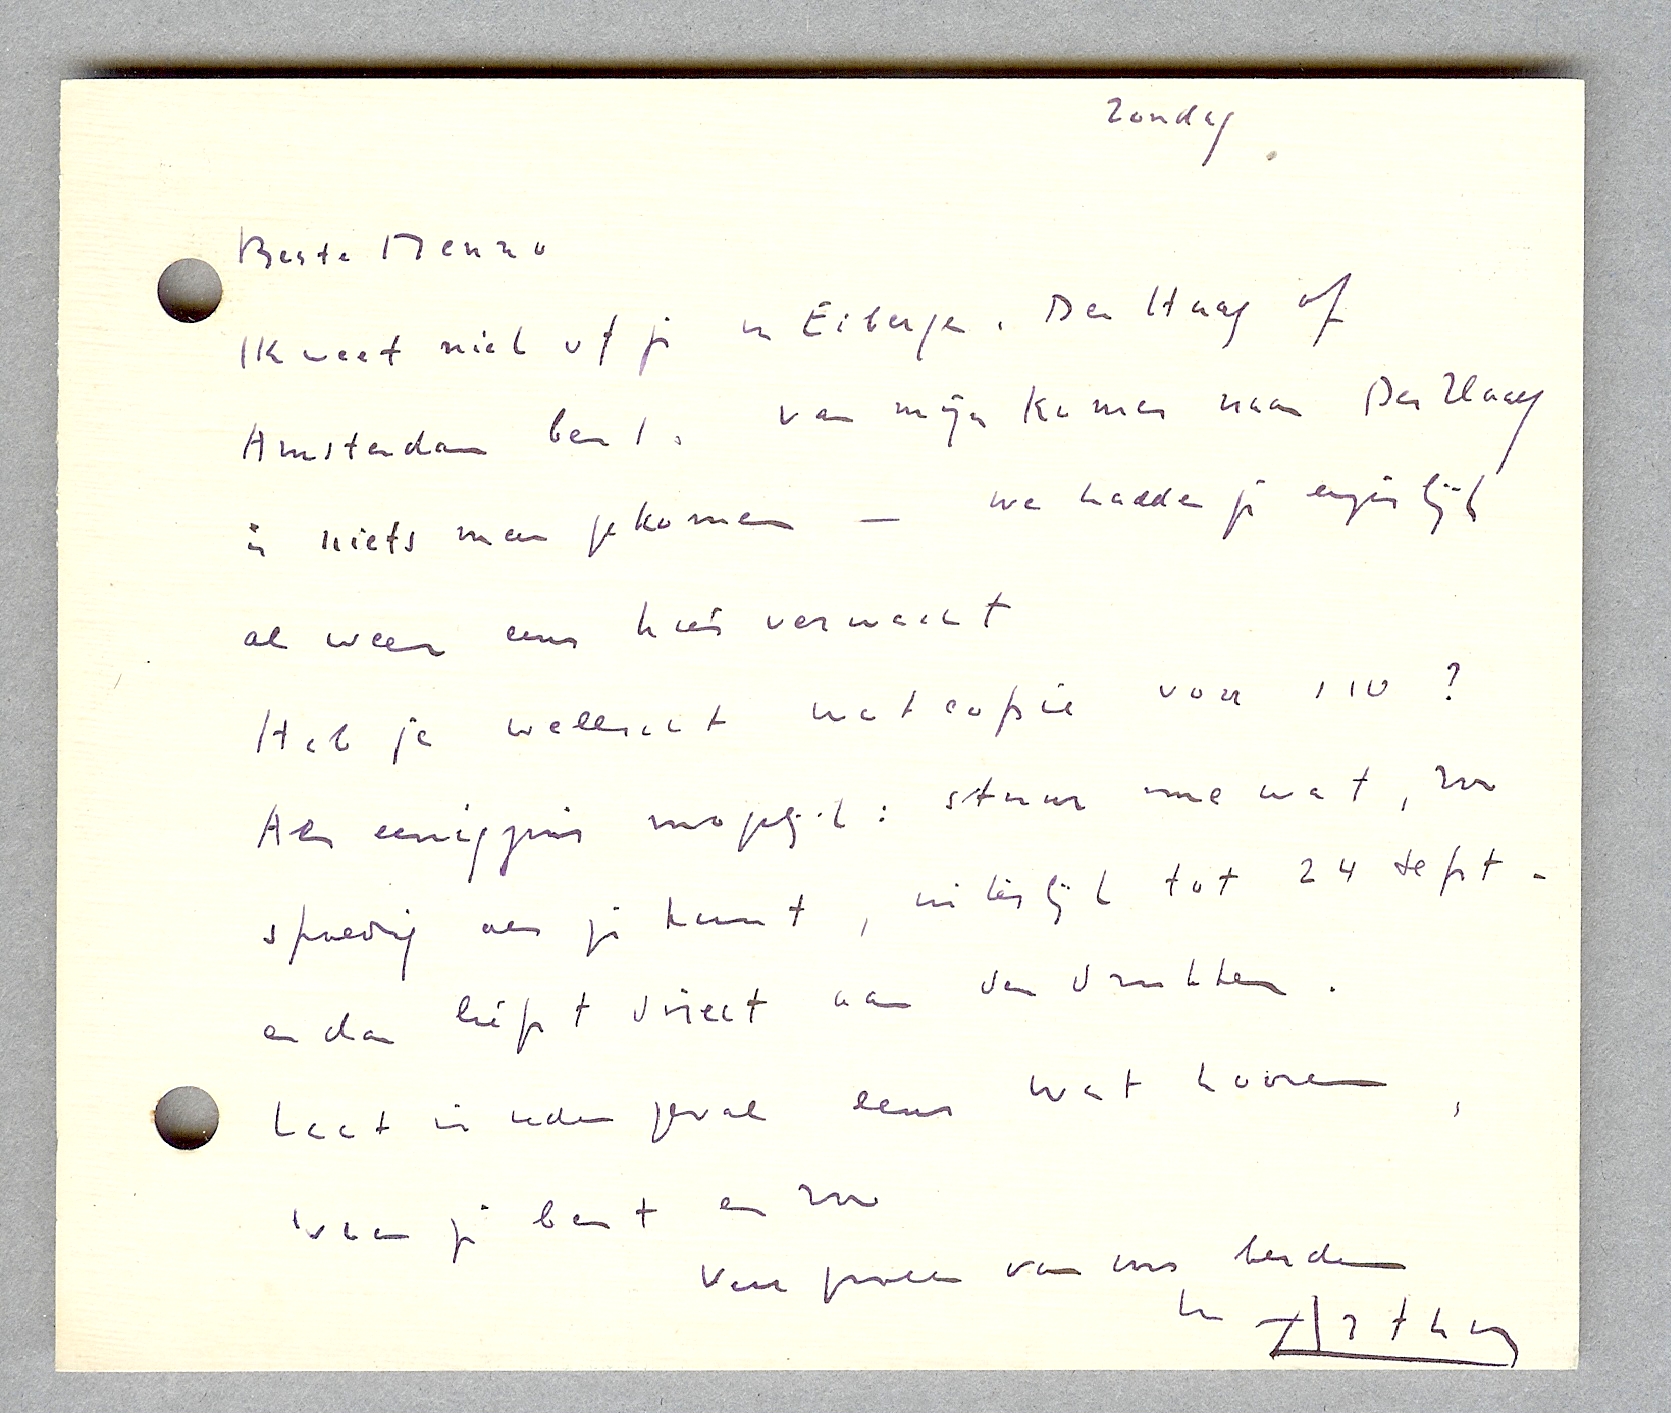 Zondag.
Beste Menno
Ik weet niet of je in Eibergen, Den Haag of
Amsterdam bent. Van mijn komen naar Den Haag
is niets meer gekomen — we hadden je eigenlijk
al weer eens hier verwacht
Heb je wellicht wat copie voor i 10 ?
Als eenigzins mogelijk: stuur me wat, zoo
spoedig als je kunt, uiterlijk tot 24 sept -
en dan liefst direct aan den drukker.
Laat in ieder geval eens wat hooren,
waar je bent en zoo
Veel groeten van ons beiden
Arthur